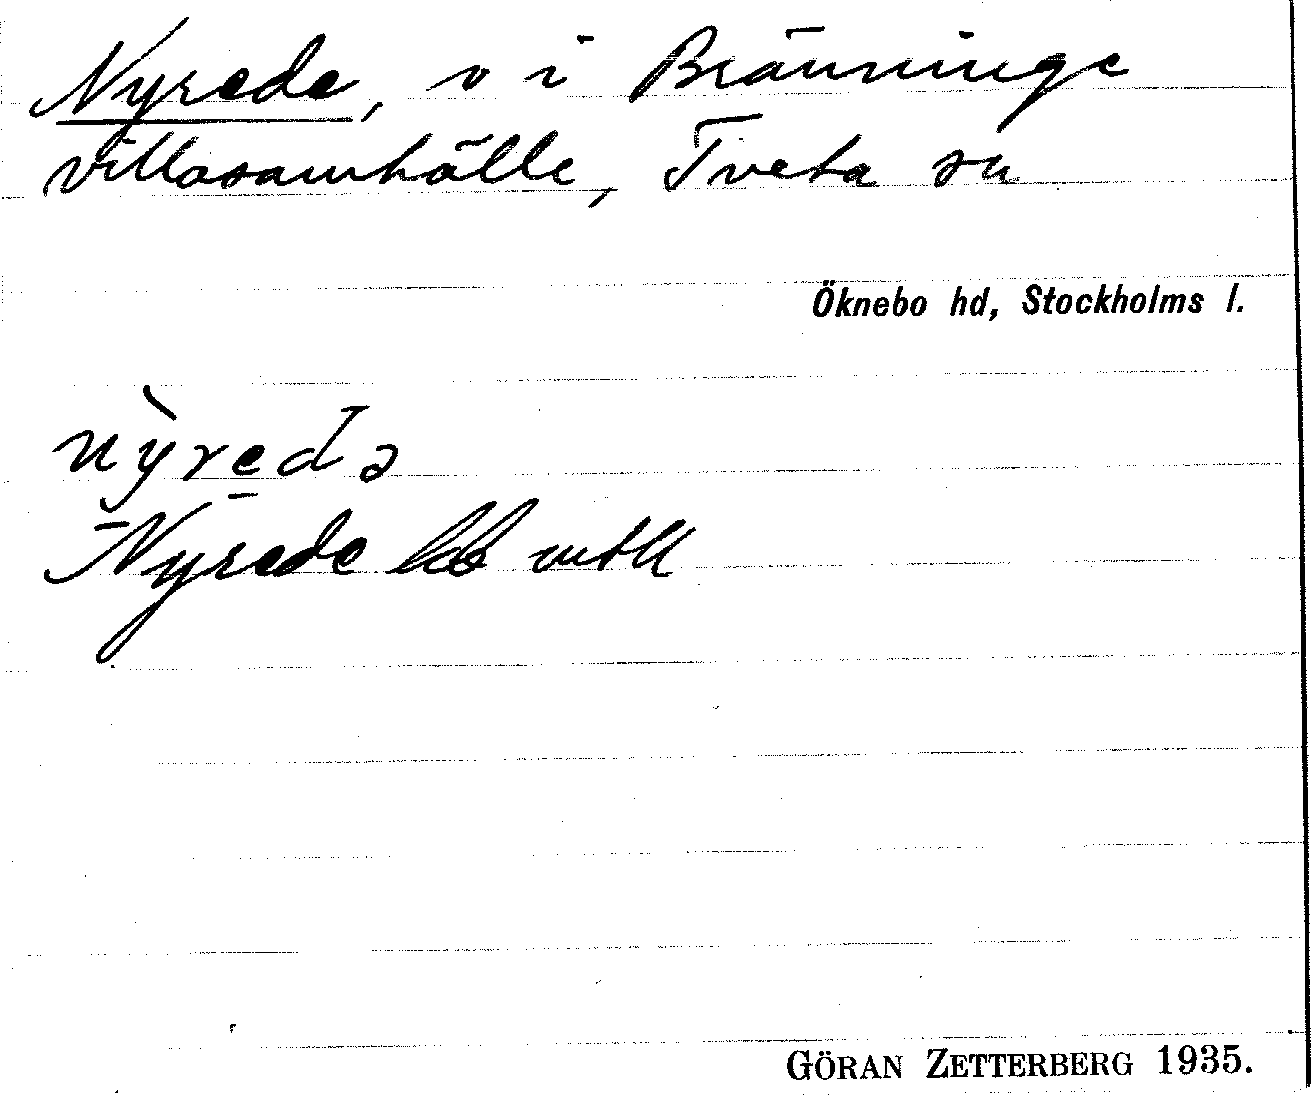 Nyrede, v i Bränninge
villasamhälle, Tveta sn
Öknebo hd, Stockholms l.
nỳredə
Nyrede
GÖRAN ZETTERBERG 1935.